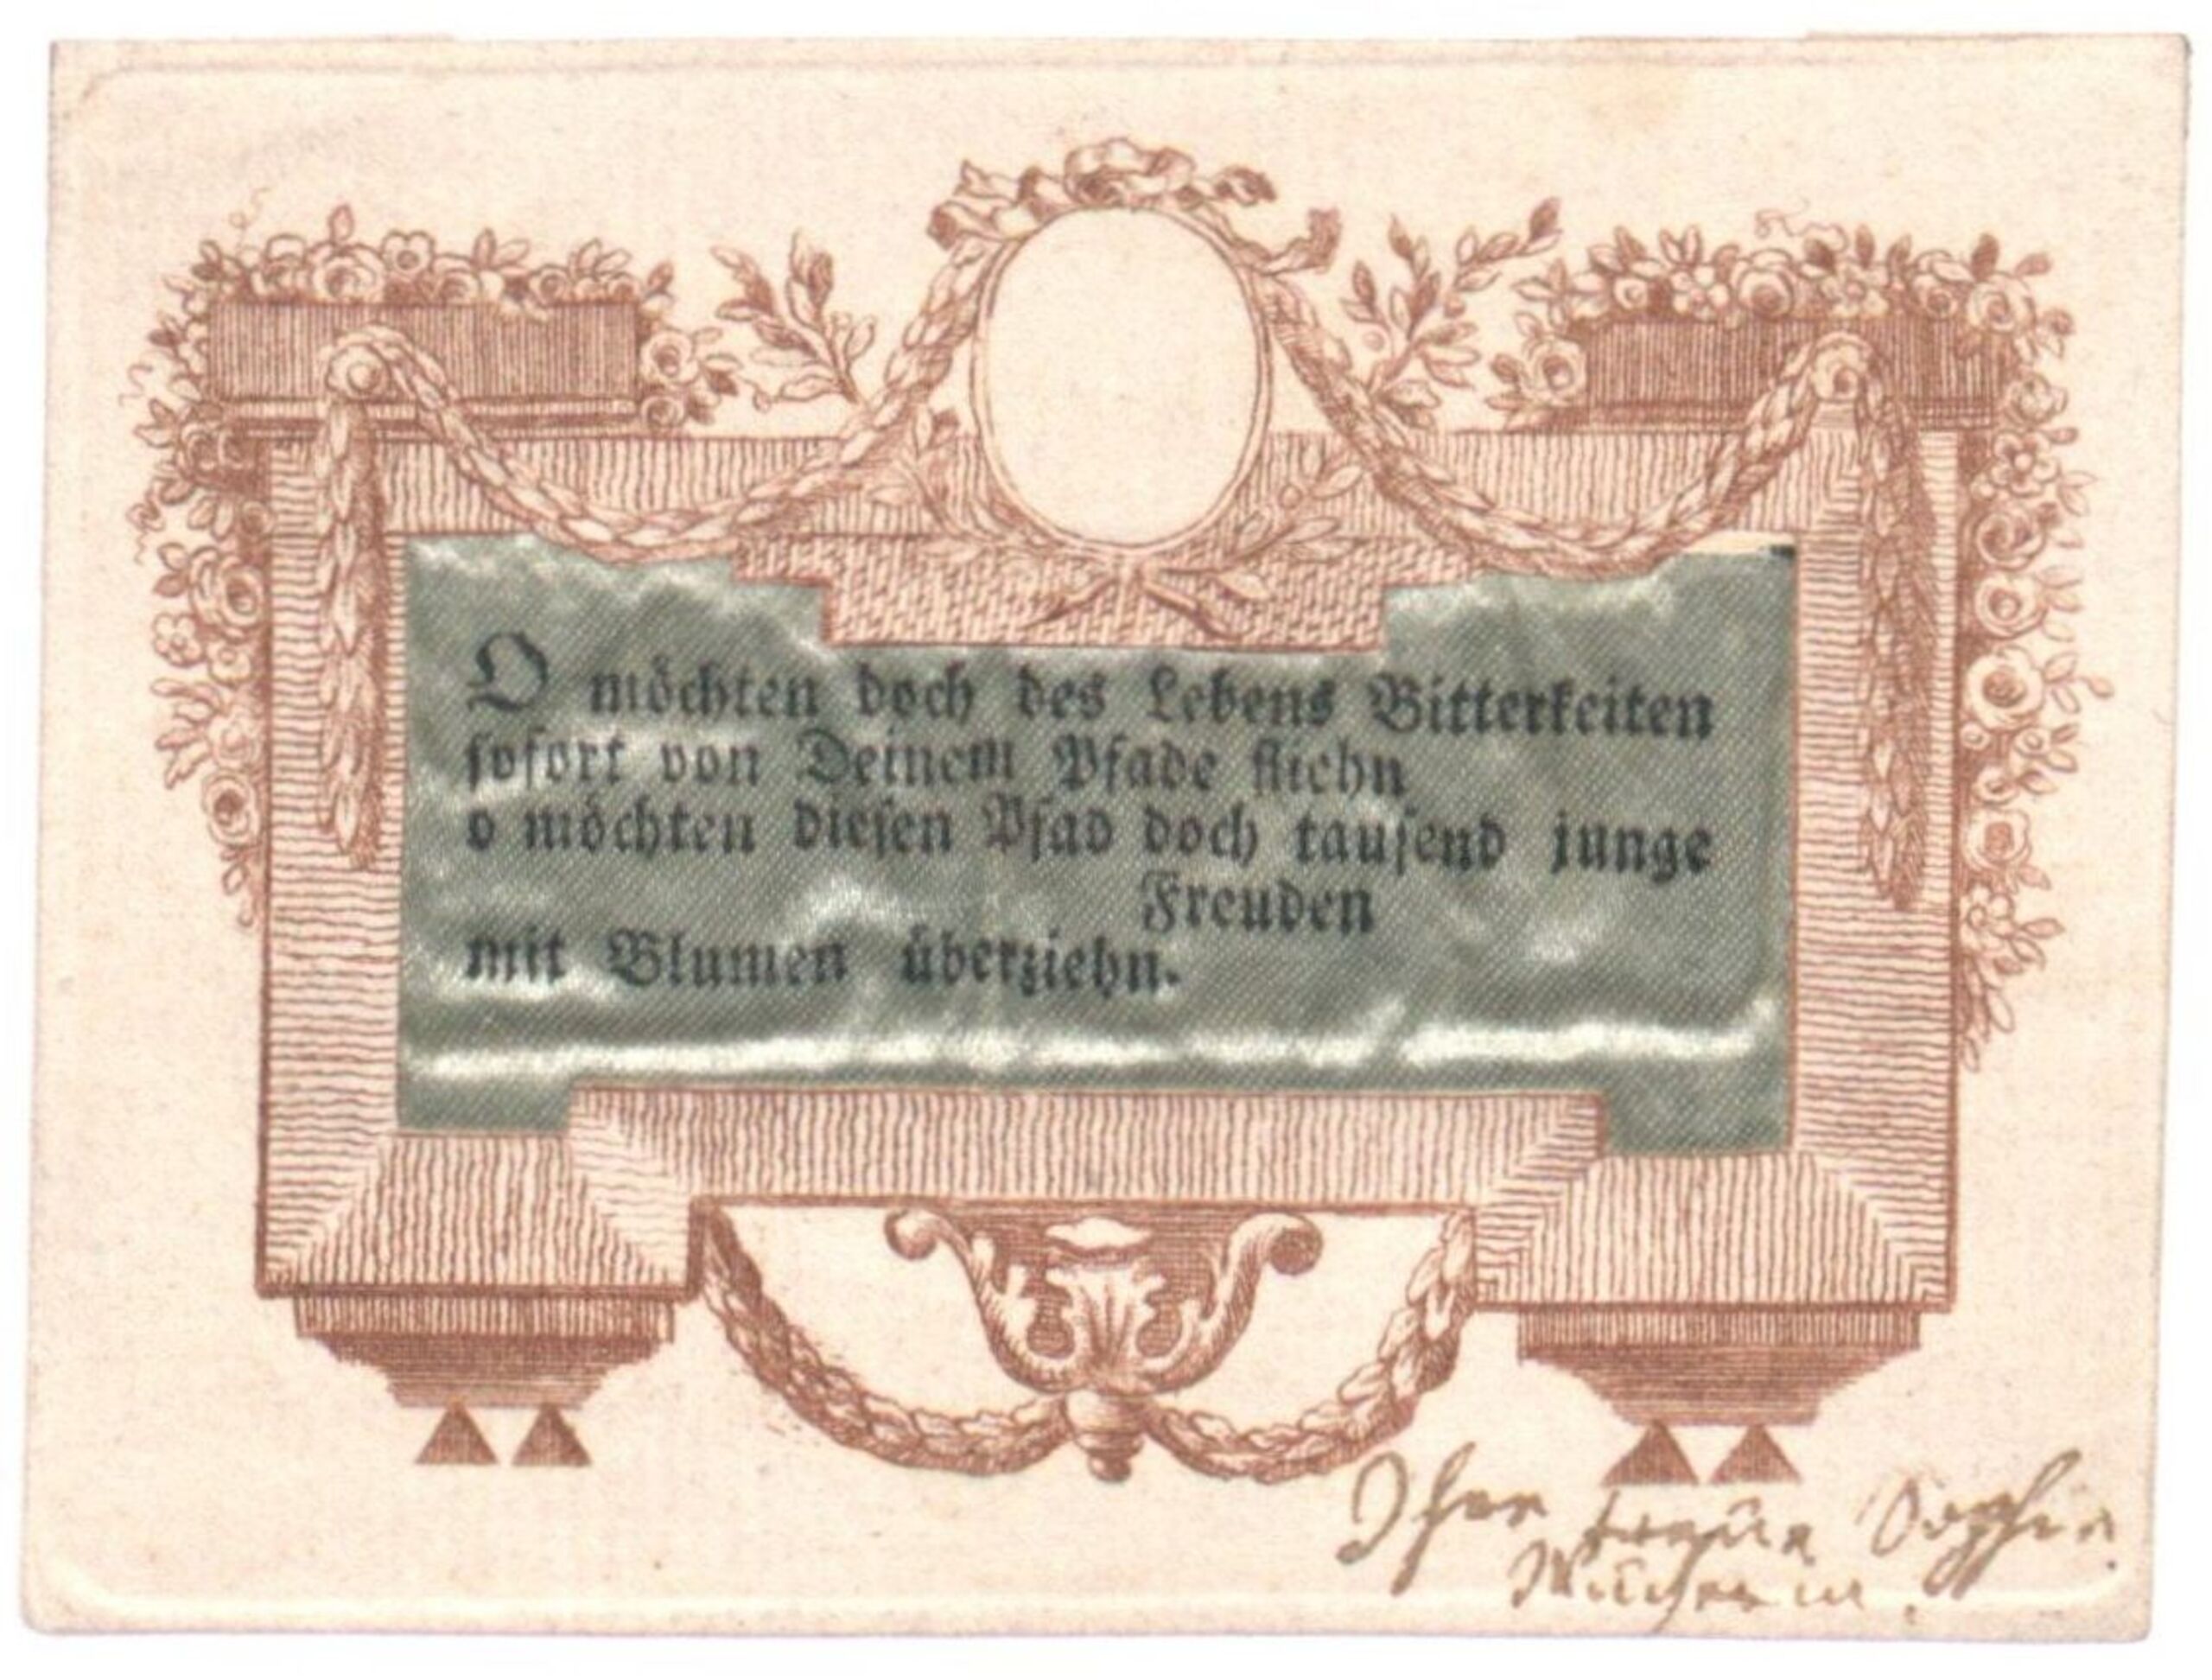 O möchten doch des Lebens Bitterkeiten
sofort von Deinem Pfade fliehn
o möchten diesen Pfad doch tausend junge
Freuden
mit Blumen überziehn.
Ihre Sophia